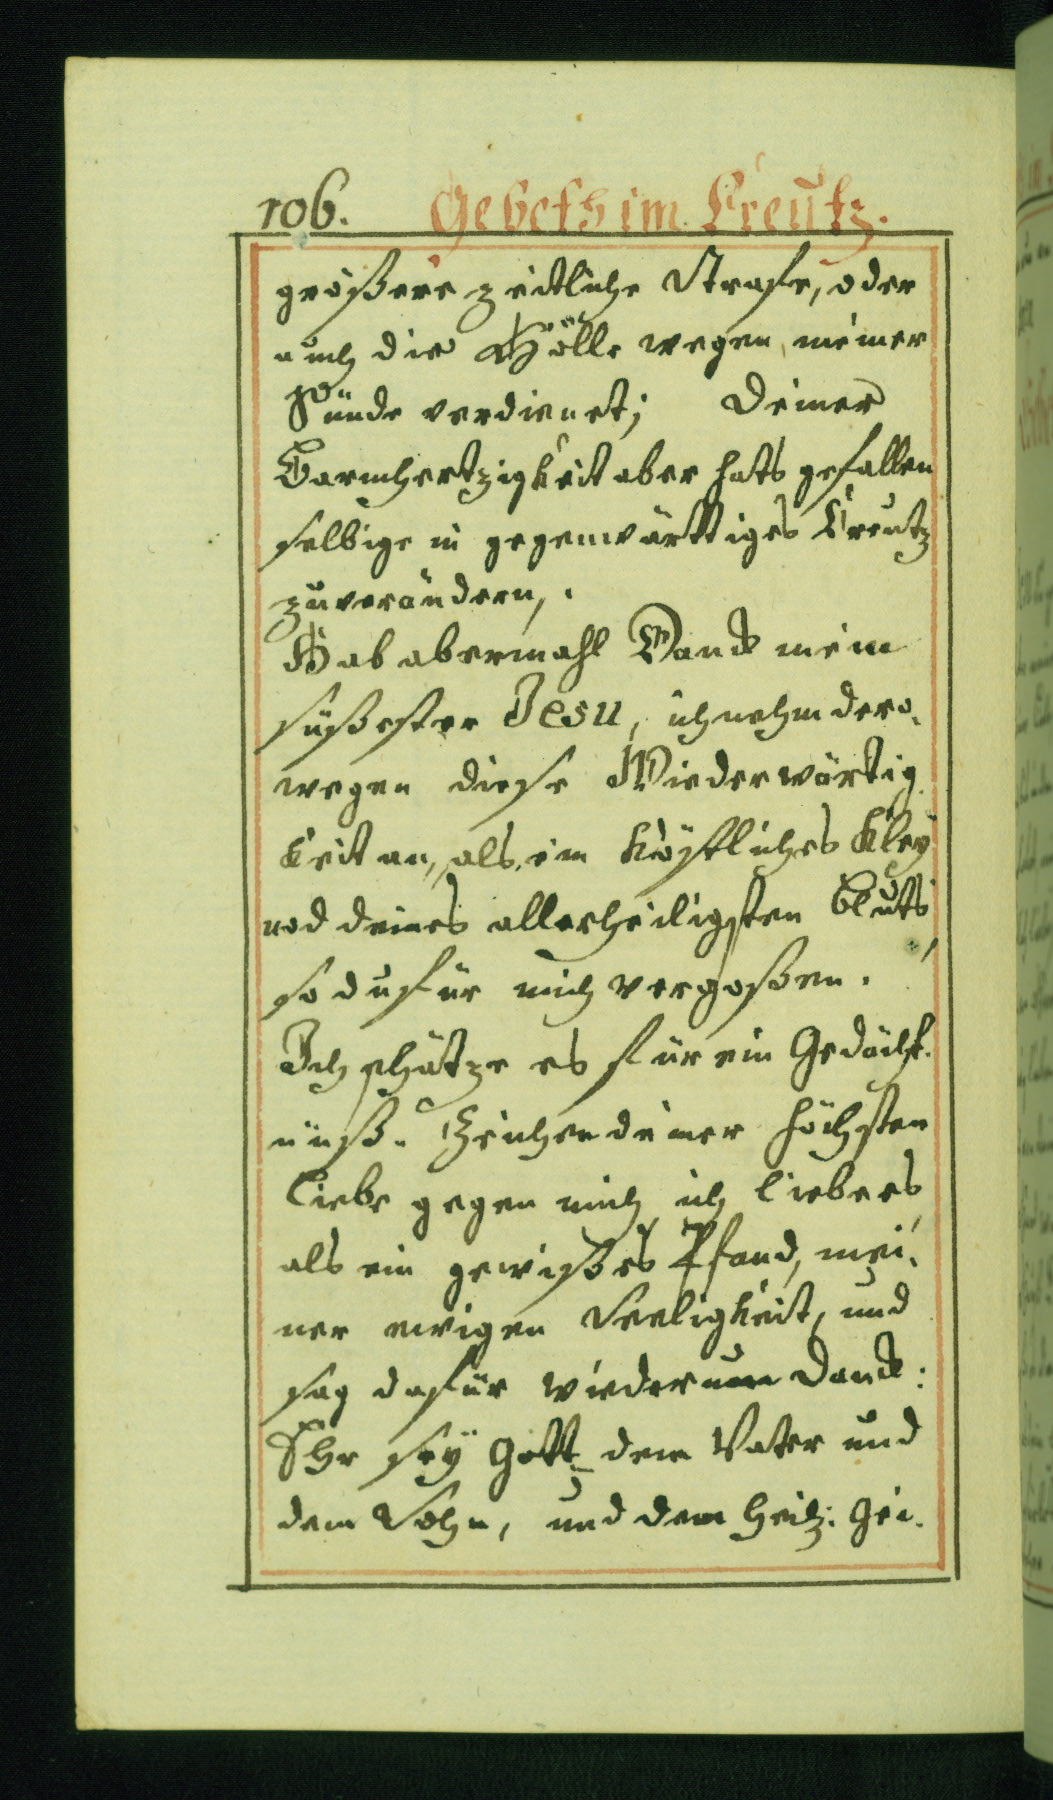 106. Gebeth im Kreutz.
größere zeitliche Strafe, oder
auch die Hölle wegen meiner
Sünde verdienet; Deiner
Barmhertzigkeit aber hats gefallen
selbige in gegenwärttiges Kreutz
zuverändern,.
Hab abermahl Danck mein
süßester Jesu, ich nehm dero,
wegen diese Wiederwärtig
keit an, als ein köstliches Kley
nod deines allerheiligsten Bluts,
so du für mich vergoßen.
Ich schätze es für ein Gedächt.
nüß. Zeichen deiner höchsten
Liebe gegen mich, ich liebe es
als ein gewißes Pfand, mei,
ner ewigen Seeligkeit, und
sag dafür wiederum danck:
Ehr sey Gott dem Vater und
dem Sohn, und dem heil: Gei.